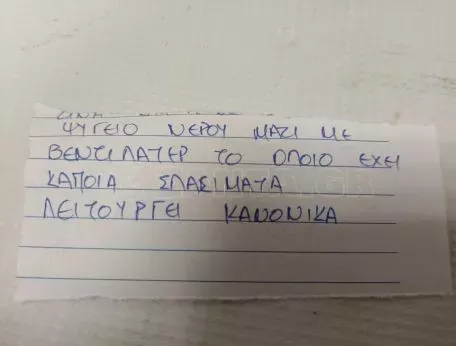 ΨΥΓΕΙΟ ΝΕΡΟΥ ΜΑΖΙ ΜΕ
ΒΕΝΤΙΛΑΤΕΡ ΤΟ ΟΠΟΙΟ ΕΧΕΙ
ΚΑΠΟΙΑ ΣΠΑΣΙΜΑΤΑ
ΛΕΙΤΟΥΡΓΕΙ ΚΑΝΟΝΙΚΑ